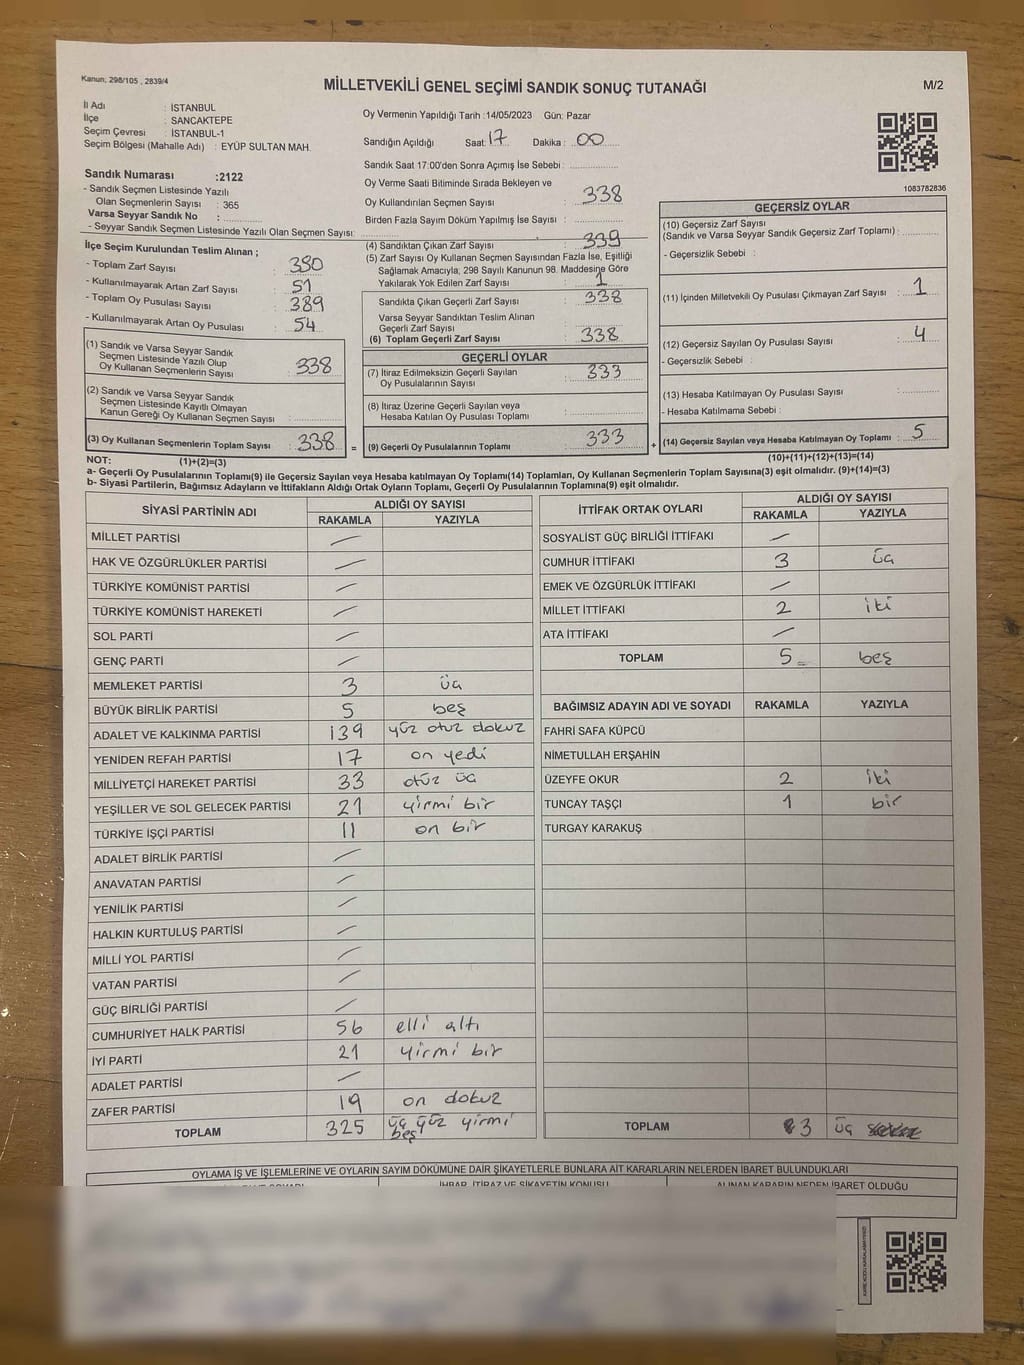 Kanun; 298/105 , 2839/4
MİLLETVEKİLİ GENEL SEÇİMİ SANDIK SONUÇ TUTANAĞI
M/2
İl Adı : İSTANBUL
İlçe : SANCAKTEPE
Seçim Çevresi : İSTANBUL-1
Seçim Bölgesi (Mahalle Adı) : EYÜP SULTAN MAH.
Sandık Numarası :2122
- Sandık Seçmen Listesinde Yazılı
Olan Seçmenlerin Sayısı : 365
Varsa Seyyar Sandık No :
- Seyyar Sandık Seçmen Listesinde Yazılı Olan Seçmen Sayısı:
Oy Vermenin Yapıldığı Tarih :14/05/2023 Gün: Pazar
Sandığın Açıldığı Saat: 17 Dakika : 00
Sandık Saat 17:00'den Sonra Açımış İse Sebebi :
Oy Verme Saati Bitiminde Sırada Bekleyen ve
Oy Kullandırılan Seçmen Sayısı : 338
Birden Fazla Sayım Döküm Yapılmış İse Sayısı :
1083782836
İlçe Seçim Kurulundan Teslim Alınan ;
- Toplam Zarf Sayısı : 380
- Kullanılmayarak Artan Zarf Sayısı : 51
- Toplam Oy Pusulası Sayısı : 389
- Kullanılmayarak Artan Oy Pusulası : 54
(1) Sandık ve Varsa Seyyar Sandık
Seçmen Listesinde Yazılı Olup
Oy Kullanan Seçmenlerin Sayısı : 338
(2) Sandık ve Varsa Seyyar Sandık
Seçmen Listesinde Kayıtlı Olmayan
Kanun Gereği Oy Kullanan Seçmen Sayısı :
(3) Oy Kullanan Seçmenlerin Toplam Sayısı : 338 =
(4) Sandıktan Çıkan Zarf Sayısı : 339
(5) Zarf Sayısı Oy Kullanan Seçmen Sayısından Fazla İse, Eşitliği
Sağlamak Amacıyla, 298 Sayılı Kanunun 98. Maddesine Göre
Yakılarak Yok Edilen Zarf Sayısı : 1
Sandıkta Çıkan Geçerli Zarf Sayısı : 338
Varsa Seyyar Sandıktan Teslim Alınan
Geçerli Zarf Sayısı :
(6) Toplam Geçerli Zarf Sayısı : 338
GEÇERLİ OYLAR
(7) İtiraz Edilmeksizin Geçerli Sayılan
Oy Pusulalarının Sayısı : 333
(8) İtiraz Üzerine Geçerli Sayılan veya
Hesaba Katılan Oy Pusulası Toplamı :
(9) Geçerli Oy Pusulalarının Toplamı : 333 +
GEÇERSİZ OYLAR
(10) Geçersiz Zarf Sayısı
(Sandık ve Varsa Seyyar Sandık Geçersiz Zarf Toplamı) :
- Geçersizlik Sebebi :
(11) İçinden Milletvekili Oy Pusulası Çıkmayan Zarf Sayısı : 1
(12) Geçersiz Sayılan Oy Pusulası Sayısı : 4
- Geçersizlik Sebebi :
(13) Hesaba Katılmayan Oy Pusulası Sayısı :
- Hesaba Katılmama Sebebi :
(14) Geçersiz Sayılan veya Hesaba Katılmayan Oy Toplamı : 5
NOT: (1)+(2)=(3)
(10)+(11)+(12)+(13)=(14)
a- Geçerli Oy Pusulalarının Toplamı(9) ile Geçersiz Sayılan veya Hesaba katılmayan Oy Toplamı(14) Toplamları, Oy Kullanan Seçmenlerin Toplam Sayısına(3) eşit olmalıdır. (9)+(14)=(3)
b- Siyasi Partilerin, Bağımsız Adayların ve İttifakların Aldığı Ortak Oyların Toplamı, Geçerli Oy Pusulalarının Toplamına(9) eşit olmalıdır.
SİYASİ PARTİNİN ADI ALDIĞI OY SAYISI
RAKAMLA YAZIYLA
MİLLET PARTİSI —
HAK VE ÖZGÜRLÜKLER PARTİSİ —
TÜRKİYE KOMÜNİST PARTİSİ —
TÜRKİYE KOMÜNİST HAREKETİ —
SOL PARTİ —
GENÇ PARTİ —
MEMLEKET PARTİSİ 3 üç
BÜYÜK BİRLİK PARTİSİ 5 beş
ADALET VE KALKINMA PARTİSİ 139 yüz otuz dokuz
YENİDEN REFAH PARTİSİ 17 on yedi
MİLLİYETÇİ HAREKET PARTİSİ 33 otuz üç
YEŞİLLER VE SOL GELECEK PARTİSİ 21 yirmi bir
TÜRKİYE İŞÇİ PARTİSİ 11 on bir
ADALET BİRLİK PARTİSİ —
ANAVATAN PARTİSİ —
YENİLİK PARTİSİ —
HALKIN KURTULUŞ PARTİSİ —
MİLLİ YOL PARTİSİ —
VATAN PARTİSİ —
GÜÇ BİRLİĞİ PARTİSİ —
CUMHURİYET HALK PARTİSİ 56 elli altı
İYİ PARTİ 21 yirmi bir
ADALET PARTİSİ —
ZAFER PARTİSİ 19 on dokuz
TOPLAM 325 üç yüz yirmi beş
İTTİFAK ORTAK OYLARI ALDIĞI OY SAYISI
RAKAMLA YAZIYLA
SOSYALİST GÜÇ BİRLİĞİ İTTİFAKI —
CUMHUR İTTİFAKI 3 üç
EMEK VE ÖZGÜRLÜK İTTİFAKI —
MİLLET İTTİFAKI 2 iki
ATA İTTİFAKI —
TOPLAM 5 beş
BAĞIMSIZ ADAYIN ADI VE SOYADI RAKAMLA YAZIYLA
FAHRİ SAFA KÜPCÜ
NİMETULLAH ERŞAHİN
ÜZEYFE OKUR 2 iki
TUNCAY TAŞÇI 1 bir
TURGAY KARAKUŞ
TOPLAM 3 üç
OYLAMA İŞ VE İŞLEMLERİNE VE OYLARIN SAYIM DÖKÜMÜNE DAİR ŞİKAYETLERLE BUNLARA AİT KARARLARIN NELERDEN İBARET BULUNDUKLARI
İHBAR, İTİRAZ VE ŞİKAYETİN KONUSU ALINAN KARARIN NEDEN İBARET OLDUĞU